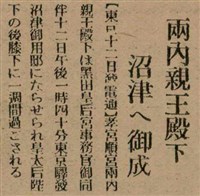 兩內親王殿下
沼津へ御成
【東京十二日發電通】孝宮順宮兩內
親王殿下は黑田皇后宮事務官御同
伴十二日午後一時四十分東京驛發
沼津御用邸にならせられ皇太后陛
下の御膝下に一週間過ごされる